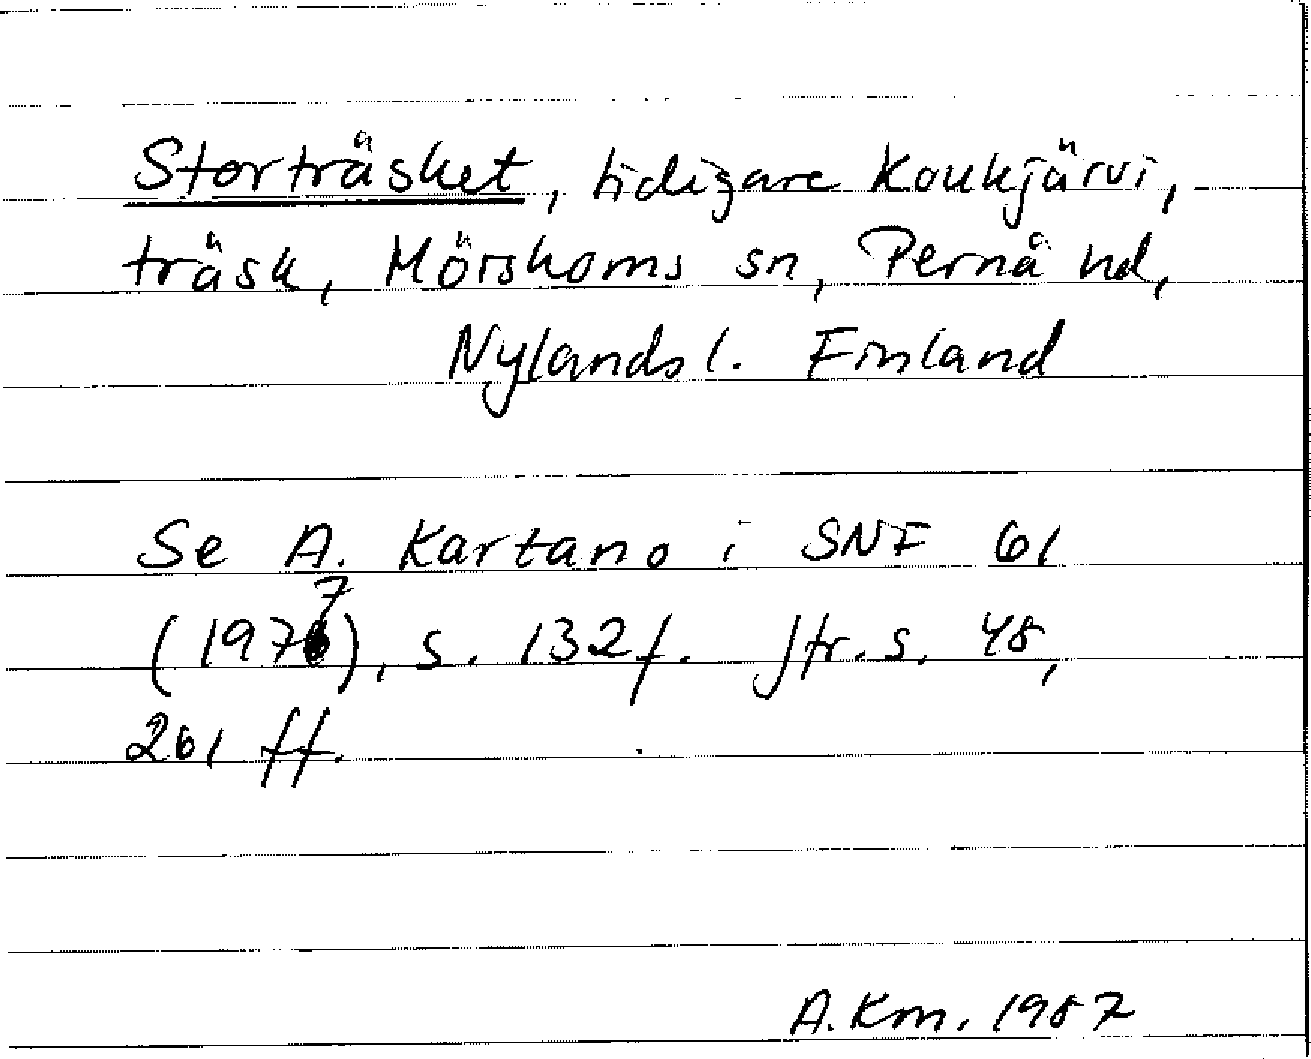 Storträsket, tidigare Koukjärvi,
träsk, Mörskoms sn, Pernå hd,
Nylands l. Finland
Se A. Kartano i SNF 61
(1977), s. 132 f. Jfr. s. 48,
261 ff.
A. Km. 1987